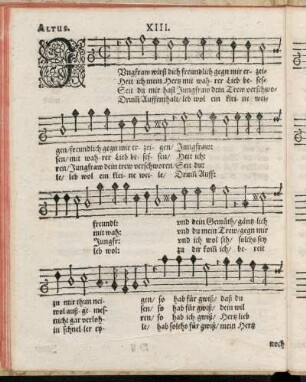 ALTUS. XIII.
JUngfraw wirst dich freundlich gegn mir erzei-
Hett ich mein Hertz mit wahrer Lieb besef-
Seit du mir hast Jungfraw dein Trew verschwo-
Drumb Auffenthalt/ leb wol ein kleine wei-
gen/ freundlich gegn mir erzeigen/ Jungfraw:
sen/ mit wahrer Lieb besessen/ Hett ich:
ren/ Jungfraw dein trew verschworen. Seit du:
le/ leb wol ein kleine weile/ Drumb Auff:
freundl: vnd dein Gemüth/ gäntzlich
mit wah: vnd du mein Trew/ gegn mir
Jungfr: vnd ich wol ich/ solchs sey
leb wol: zu dir komm ich/ bereit
zu mir than nei- gen/ so hab für gwiß/ daß du
wol außgemes- sen/ so hab für gwiß/ dein wil
nicht gar verloh- ren/ so hab ich gwiß/ Hertz lieb
in schneller ey- le/ hab solchs für gwiß/ mein Hertz
noch